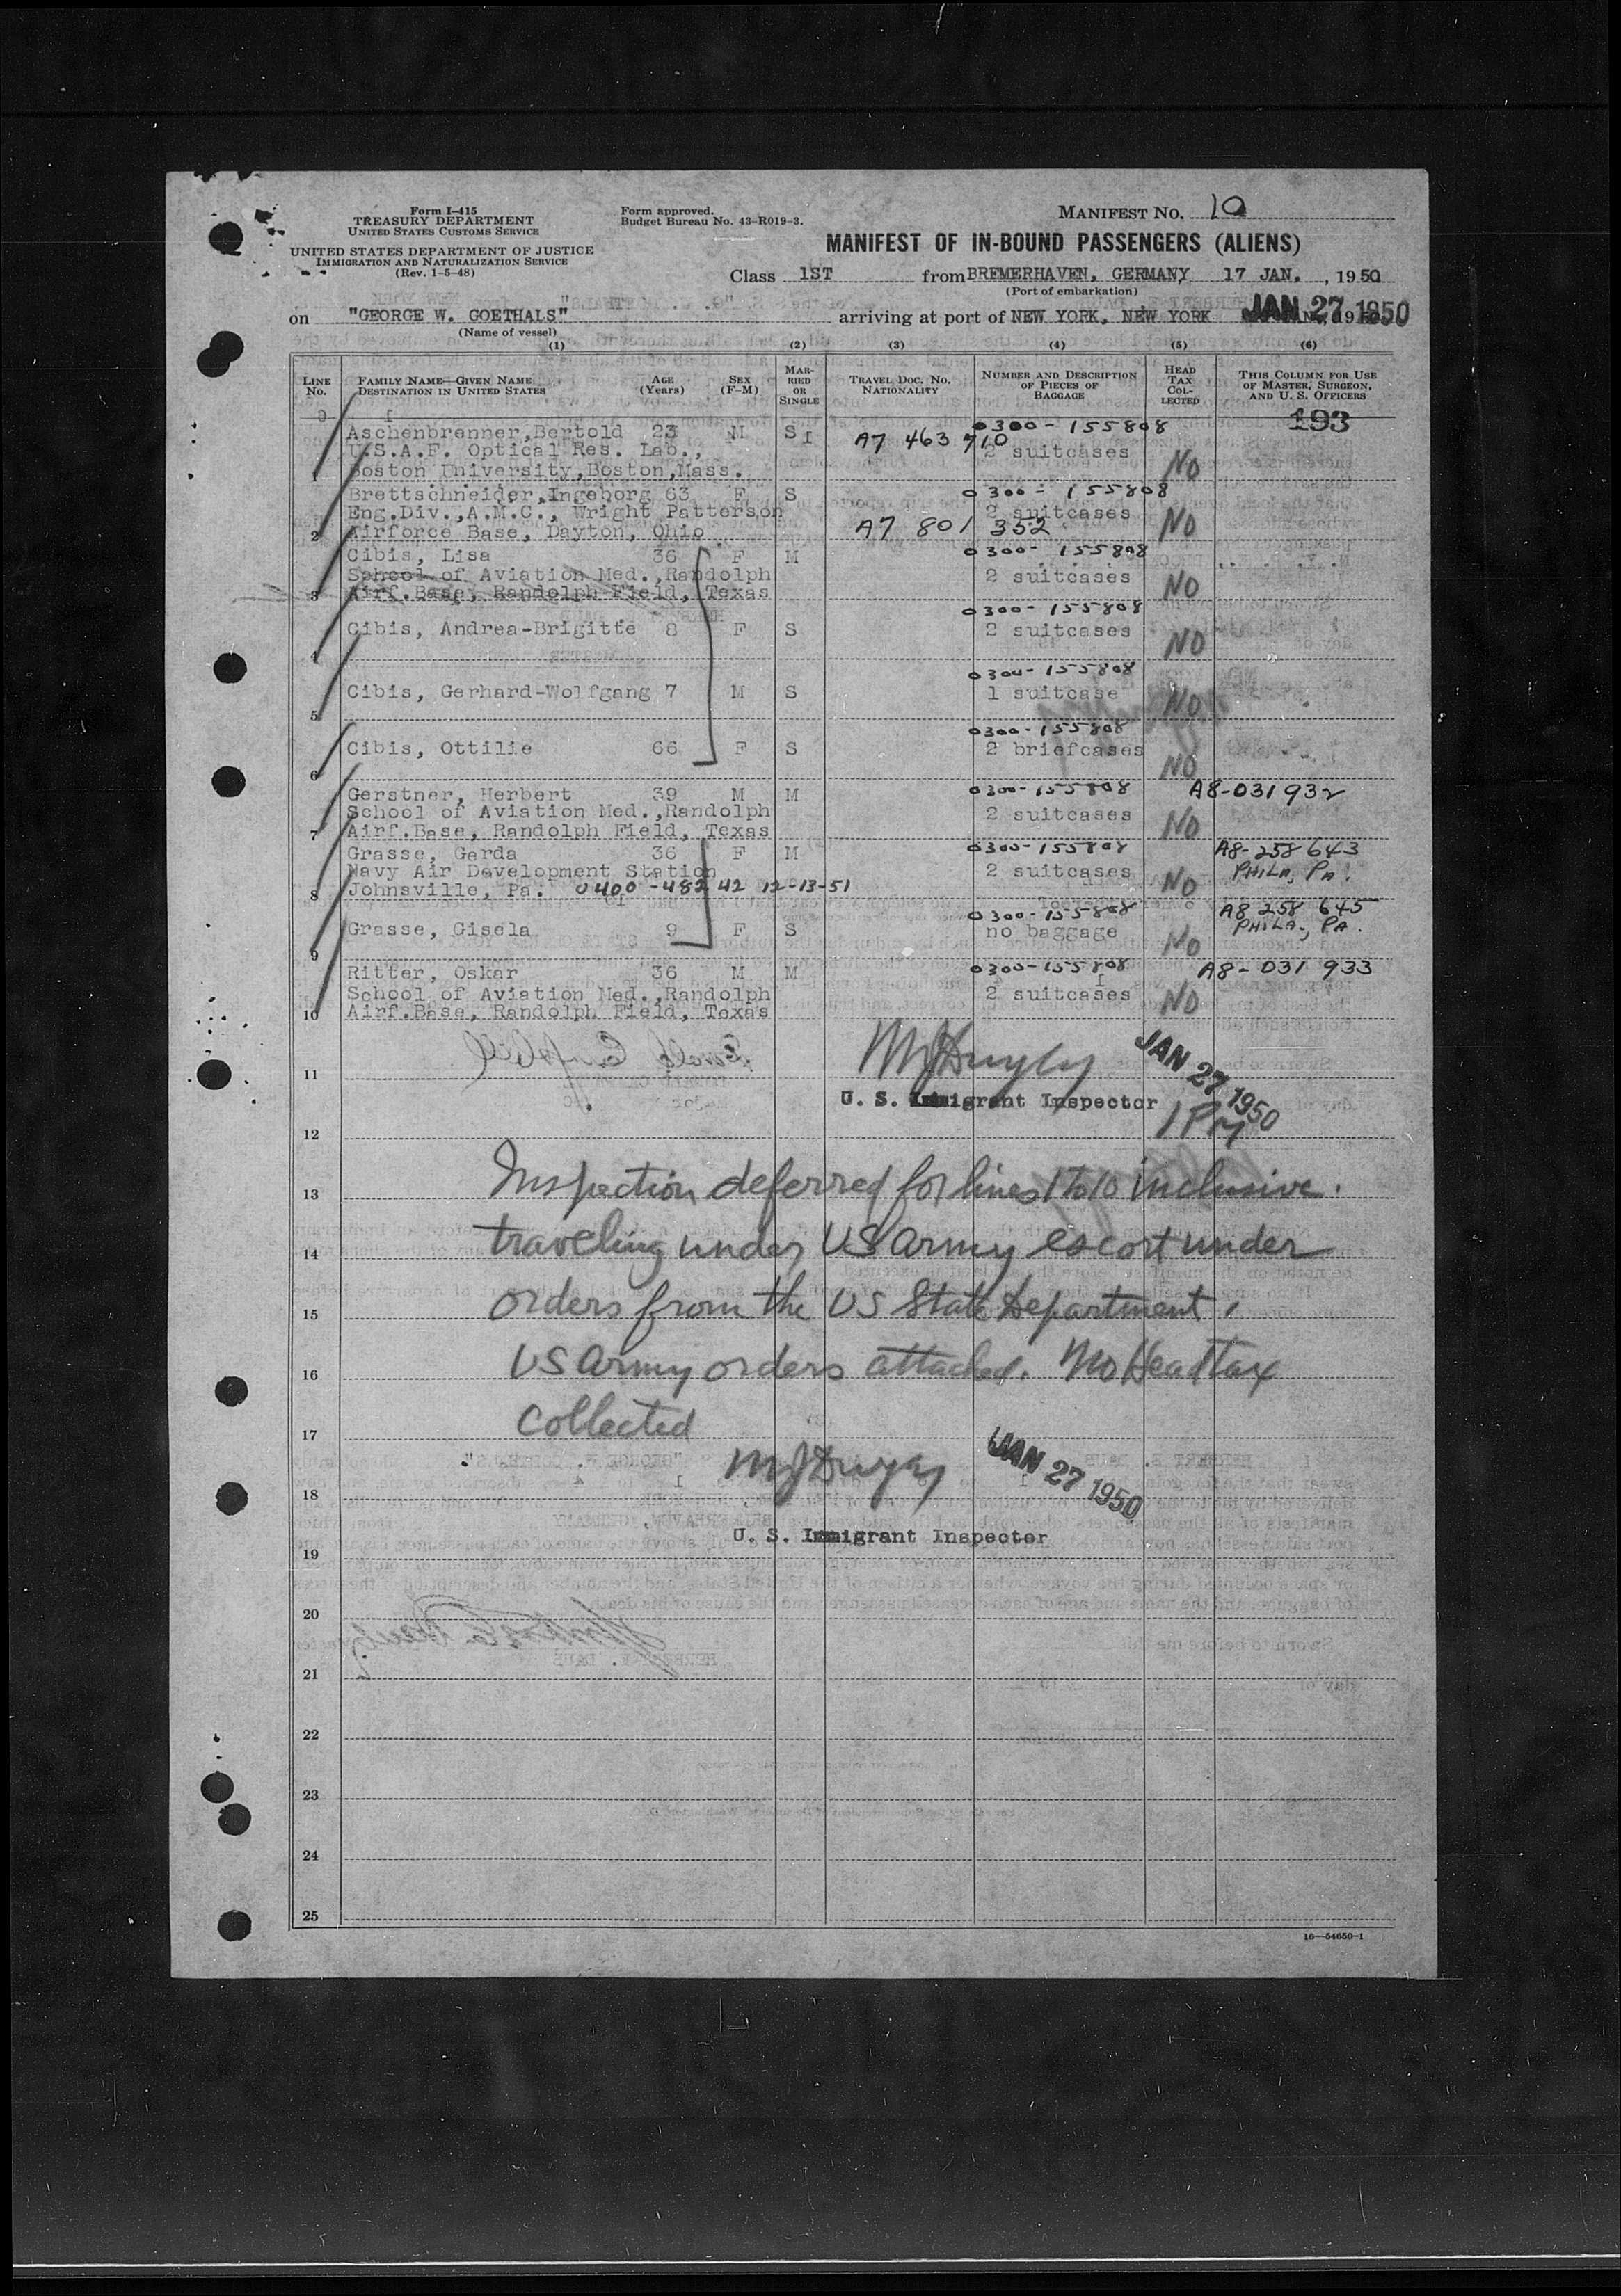 Form I-415
TREASURY DEPARTMENT
UNITED STATES CUSTOMS SERVICE
UNITED STATES DEPARTMENT OF JUSTICE
IMMIGRATION AND NATURALIZATION SERVICE
(Rev. 1-5-48)
Form approved.
Budget Bureau No. 43-R019-3.
MANIFEST No. 10
MANIFEST OF IN-BOUND PASSENGERS (ALIENS)
Class 1ST from BREMERHAVEN, GERMANY, 17 JAN., 1950
(Port of embarkation)
on "GEORGE W. GOETHALS" arriving at port of NEW YORK, NEW YORK JAN 27 1950
(Name of vessel)
(1) (2) (3) (4) (5) (6)
LINE No. FAMILY NAME—GIVEN NAME DESTINATION IN UNITED STATES AGE (Years) SEX (F-M) MARRIED OR SINGLE TRAVEL DOC. No. NATIONALITY NUMBER AND DESCRIPTION OF PIECES OF BAGGAGE HEAD TAX COLLECTED THIS COLUMN FOR USE OF MASTER, SURGEON, AND U. S. OFFICERS
193
Aschenbrenner,Bertold 23 M S 0300-155808
U.S.A.F. Optical Res. Lab., A7 463 710 2 suitcases
1 Boston University,Boston,Mass. NO
Brettschneider,Ingeborg 63 F S 0300-155808
Eng.Div.,A.M.C., Wright Patterson 2 suitcases
2 Airforce Base, Dayton, Ohio A7 801 352 NO
Cibis, Lisa 36 F M 0300-155808
School of Aviation Med.,Randolph 2 suitcases
3 Airf.Base, Randolph Field, Texas NO
0300-155808
Cibis, Andrea-Brigitte 8 F S 2 suitcases
4 NO
0300-155808
Cibis, Gerhard-Wolfgang 7 M S 1 suitcase NO
5
0300-155808
Cibis, Ottilie 66 F S 2 briefcases
6 NO
Gerstner, Herbert 39 M M 0300-155808 A8-031932
School of Aviation Med.,Randolph 2 suitcases
7 Airf.Base, Randolph Field, Texas NO
Grasse, Gerda 36 F M 0300-155808 A8-258 643
Navy Air Development Station 2 suitcases PHILA, PA.
8 Johnsville, Pa. 0400-48242 12-13-51 NO
0300-155808 A8 258 645
Grasse, Gisela 9 F S no baggage PHILA., PA.
9 NO
Ritter, Oskar 36 M M 0300-155808 A8-031 933
School of Aviation Med.,Randolph 2 suitcases
10 Airf.Base, Randolph Field, Texas NO
MJDwyer JAN 27 1950
11
U. S. Immigrant Inspector
1 PM
12
13 Inspection deferred for lines 1 to 10 inclusive.
14 traveling under US Army escort under
15 orders from the US State Department.
16 US Army orders attached. No Head tax
17 collected
MJDwyer JAN 27 1950
18
U. S. Immigrant Inspector
19
20
21
22
23
24
25
16—54650-1